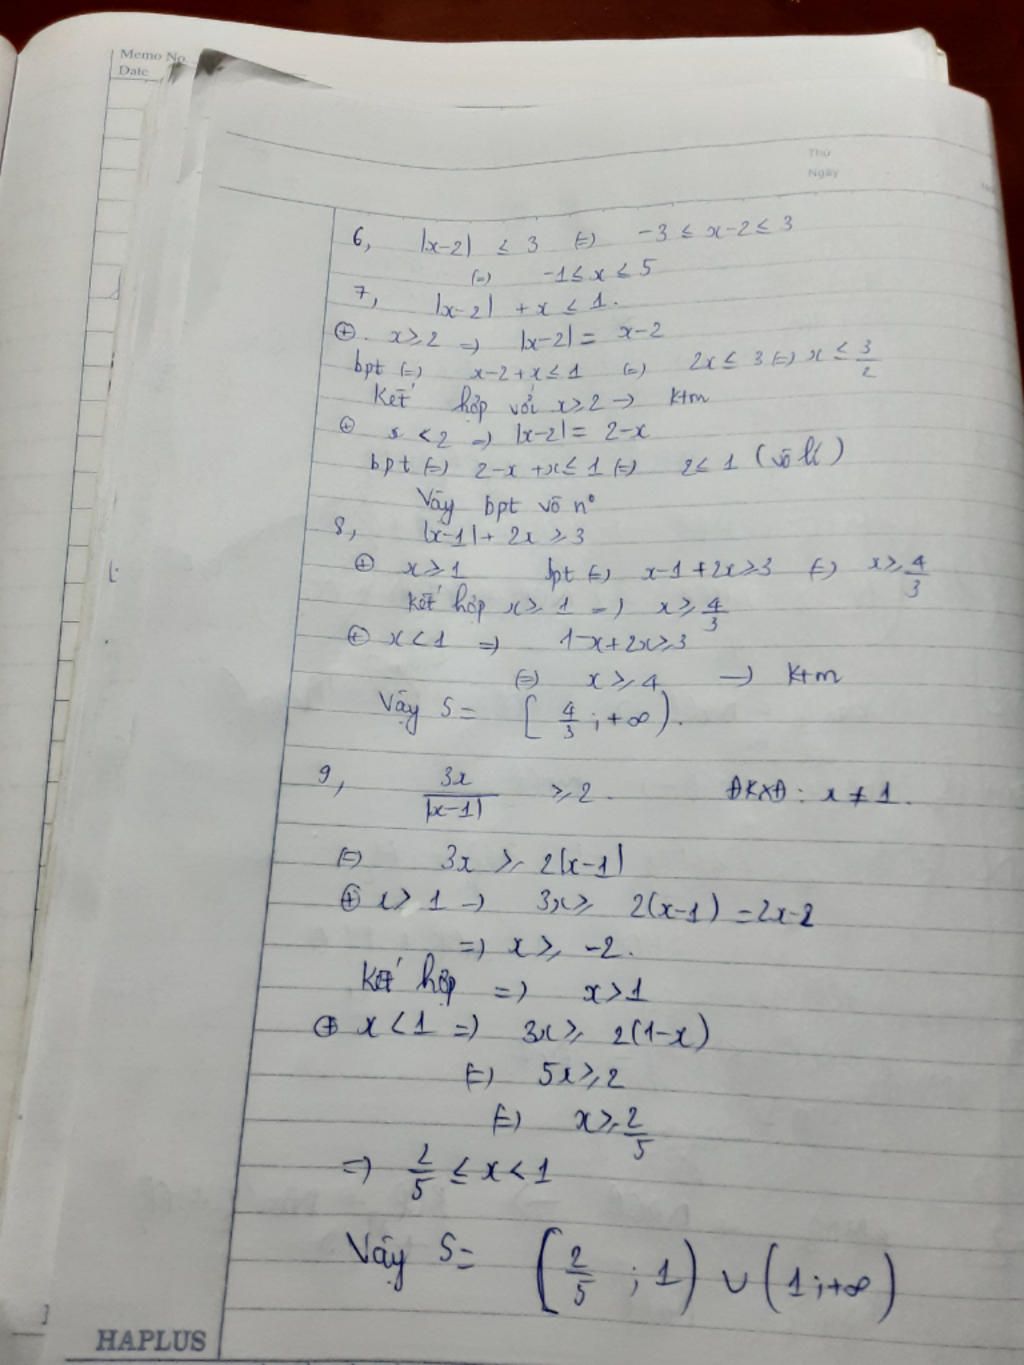 Memo No.
Date
Thứ
Ngày
6, |x-2| ≤ 3 (=) -3 ≤ x-2 ≤ 3
(=) -1 ≤ x ≤ 5
7, |x-2| + x ≤ 1.
⊕. x ≥ 2 => |x-2| = x-2
bpt (=) x-2+x ≤ 1 (=) 2x ≤ 3 (=) x ≤ 3/2
Kết hợp với x ≥ 2 -> Ktm
⊕ x < 2 => |x-2| = 2-x
bpt (=) 2-x+x ≤ 1 (=) 2 ≤ 1 (vô lí)
Vậy bpt vô n°
8, |x-1| + 2x ≥ 3
⊕ x ≥ 1 bpt (=) x-1+2x ≥ 3 (=) x ≥ 4/3
Kết hợp x ≥ 1 => x ≥ 4/3
⊕ x < 1 => 1-x+2x ≥ 3
(=) x ≥ 4 -> Ktm
Vậy S = [4/3; +∞).
9, 3x/|x-1| ≥ 2. ĐKXĐ: x ≠ 1.
(=) 3x ≥ 2|x-1|
⊕ x > 1 -> 3x ≥ 2(x-1) = 2x-2
=> x ≥ -2.
Kết hợp => x > 1
⊕ x < 1 => 3x ≥ 2(1-x)
(=) 5x ≥ 2
(=) x ≥ 2/5
=> 2/5 ≤ x < 1
Vậy S = [2/5; 1) ∪ (1; +∞)
HAPLUS